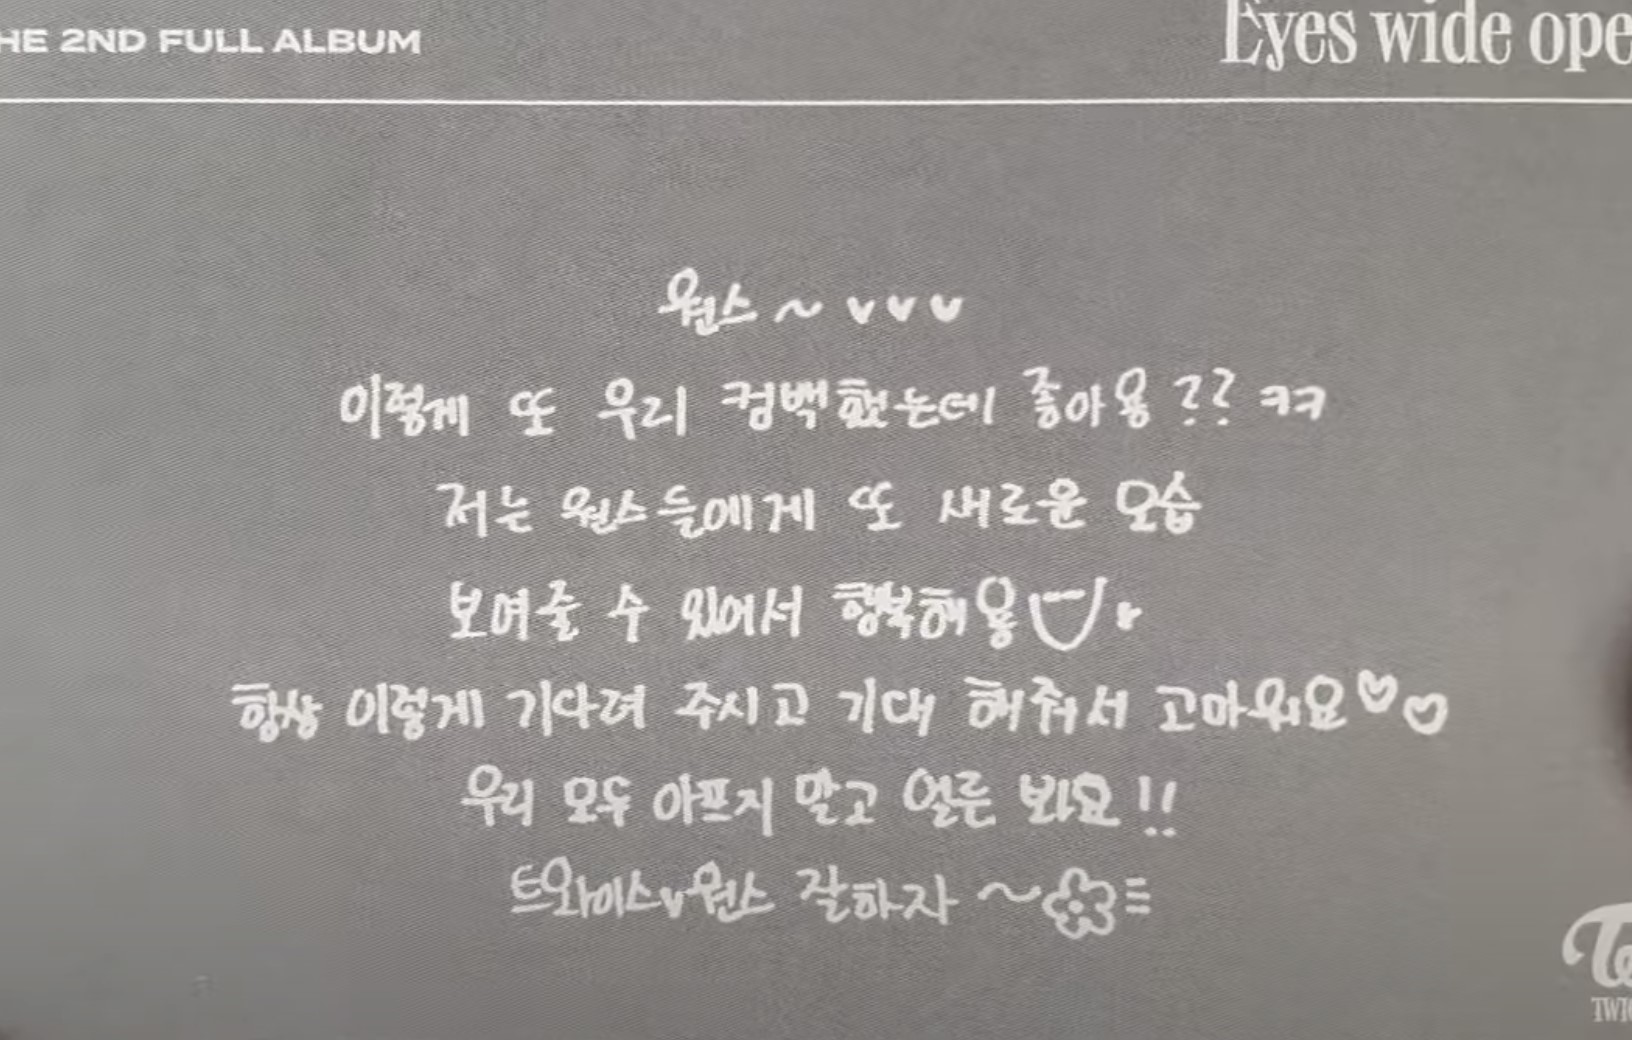 HE 2ND FULL ALBUM
Eyes wide ope
원스~ ♥♥♥
이렇게 또 우리 컴백했는데 좋아용?? ㅋㅋ
저는 원스들에게 또 새로운 모습
보여줄 수 있어서 행복해용
항상 이렇게 기다려 주시고 기대 해줘서 고마워요♡♡
우리 모두 아프지 말고 얼른 봐요!!
트와이스♥원스 잘하자~
TWIC